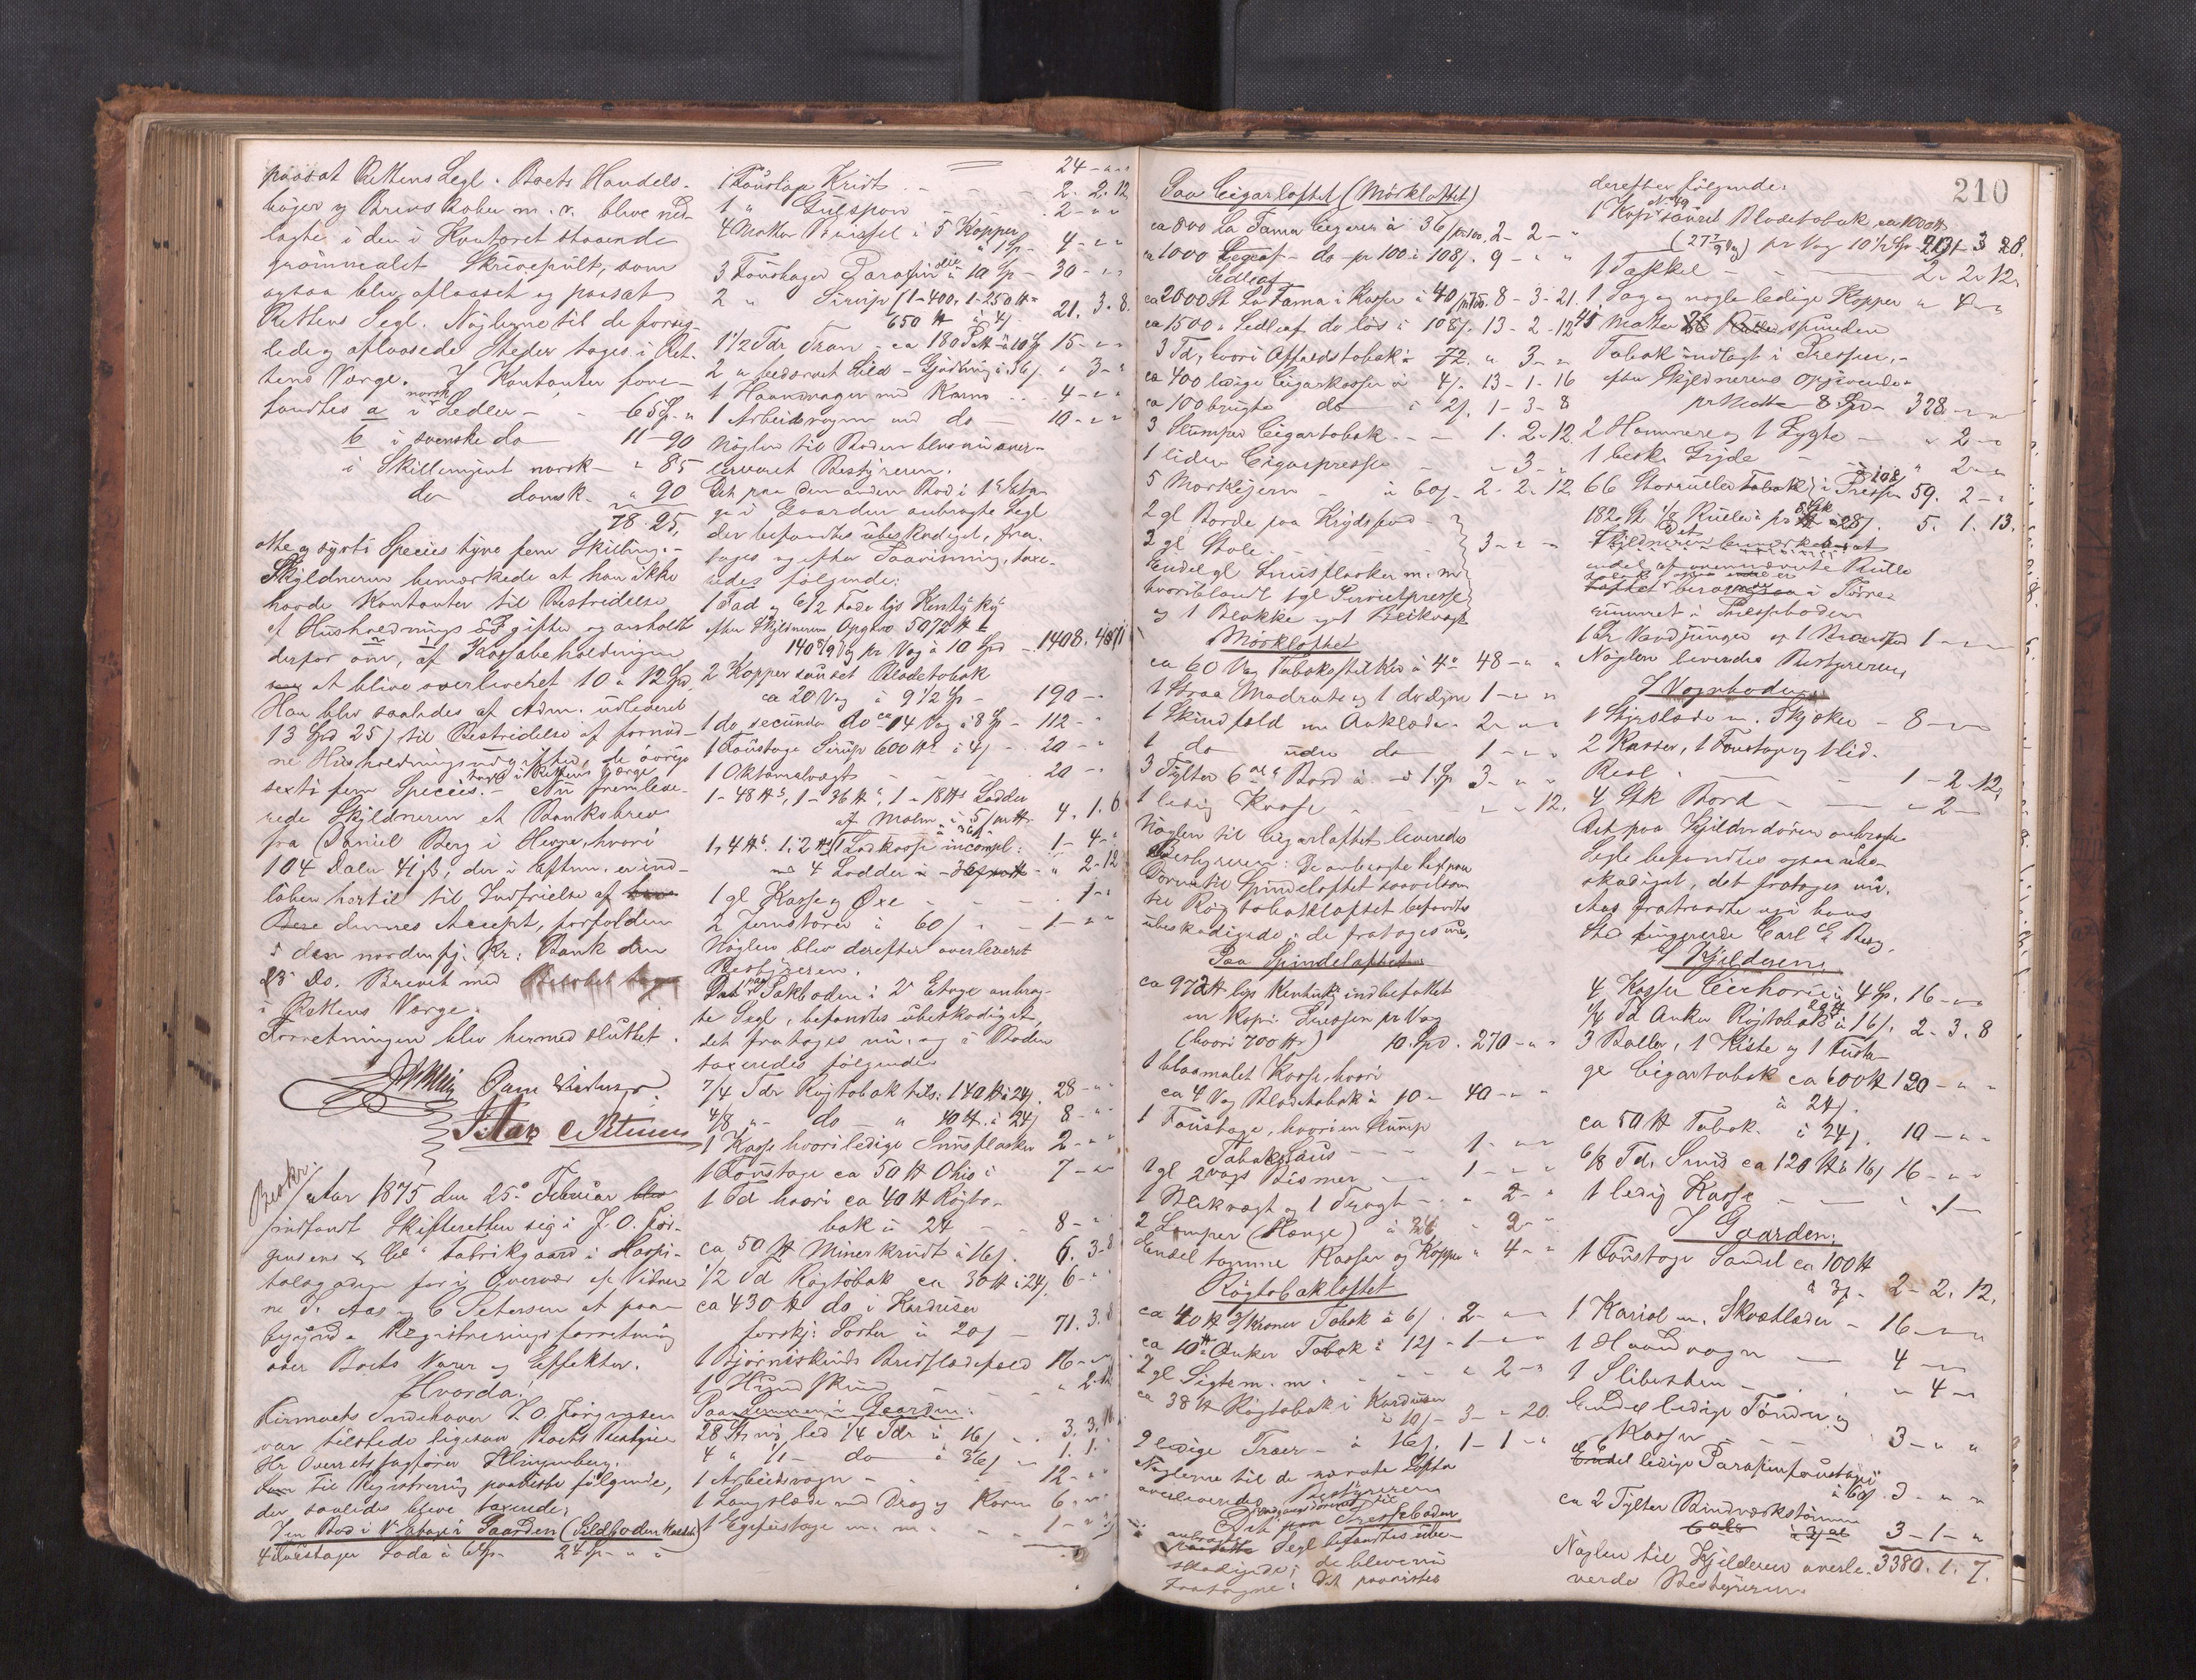 paasat Rettens Segl. Boets Handels-
bøger og Brevskaber m. v. bleve ned-
lagte i den i Kontoret staaende
grønmalet Skrivepult, som
ogsaa blev aflaaset og paasat
Rettens Segl. Nøglerne til de forseg-
lede og aflaasede Steder toges i Ret-
tens Værge. I Kontanter fore-
fandtes a i norske Sedler - 65 Sp. "
b i svenske do 11 - 90
i Skillemynt norsk - " 85
do dansk - " 90
78. 25,
otte og sytti Species tyve fem Skilling. -
Skyldneren bemærkede at han ikke
havde Kontanter til Bestridelse
af Husholdningsudgifter og anholdt
derfor om, af Kassabeholdningen
at blive overleveret 10 a 12 Spd.
Han blev saaledes af Adm. udleveret
13 Spd 25 / til Bestridelse af fornød-
ne Husholdningsudgifter, de øvrige
sexti fem Species toges i Rettens Værge. - Nu fremleve-
rede Skyldneren et Banksbrev
fra Daniel Berg i hvori
104 Daler 41 ß, der i Efterm. er ind-
løben hertil til Indfrielse af
dennes Accept, forfalden
i den nordenfj: Kr: Bank den
25 ds. Brevet med Beløbet toges
i Rettens Værge.
Forretningen blev hermed sluttet.
C Petersen
Beskr.
Aar 1875 den 25de Februar
indfandt Skifteretten sig i J. O. Jør-
gensens & Co's Fabrikgaard i Hospi-
talsgaden for i Overvær af Vidner-
ne T. Aas og C Petersen at paa-
begynde Registreringsforretning
over Boets Varer og Effekter.
Hvorda!
Firmaets Indehaver J. O. Jørgensen
var tilstede ligesom Boets Bestyrer
Hr Overretssagfører Klingenberg.
Til Registrering paavistes følgende,
der saaledes bleve taxerede:
I en Bod i 1ste Etage i Gaarden (Sildboden kaldet)
4 Foustager Soda à 6 Sp - 24 Sp - " "
24 - " "
1 Foustage Kridt - - 2. 2. 12
1 " Gulspon - 2 - " "
4 Matter i 5 Kopper à 1 Sp - 4 - " "
3 Foustager Parafinolie à 10 Sp - 30 - " "
2 " Sirup (1 - 400, 1 - 250 ℔ =
650 ℔ à 4 / 21. 3. 8.
1 1/2 Tdr Tran - ca 180 Pot à 10 ß 15 - " "
2 " bedærvet Sild - Gjødning à 36 / " 3 - "
1 Haandvogn med Karm - - 4 - " "
1 Arbeidsvogn med do - 10 - " "
Nøglen til Boden blev nu over-
leveret Bestyreren.
Det paa den anden Bod i 1ste Eta-
ge i Gaarden anbragte Segl
der befandtes ubeskadiget, fra-
toges og efter Paavisning, taxe-
redes følgende:
1 Fad og 6/2 Fade lys Kentuky
efter Skyldneren Opgave 5072 ℔ =
140 8/9 Vog pr Vog à 10 Spd - 1408. 4.
2 Kopper sauset Bladetobak
ca 20 Vog à 9 1/2 Sp - 190 - "
1 do secunda do ca 14 Vog à 8 Sp - 112 - "
1 Foustage Sirup 600 ℔ à 4 / - 20 - "
1 Oktomalvægt - - - 20 - "
1 - 48 ℔s, 1 - 36 ℔s, 1 - 18 ℔s Lodder
af Malm à 5 / pr ℔ 4. 1. 6
1, 4 ℔s, 1, 2 ℔s, 1 Lodkasse incompl: 1 - 4 - "
med 4 Lodder à 36 " 2 - 12
1 gl Kasse og Øxe - - - 1 - "
2 Jernstører à 60 / - 1 - " "
Nøglen blev derefter overleveret
Bestyreren.
Det paa Pakboden i 2den Etage anbrag-
te Segl, befandtes ubeskadiget,
det fratoges nu, og i Boden
taxeredes følgende
7/4 Tdr Røgtobak tils: 140 ℔ à 24 / 28 - " "
4/8 " - do - " 40 ℔ à 24 / 8 - " "
1 Kasse hvori ledige Snusflasker 2 - " "
1 Foustage ca 50 ℔ Ohio à 7 - " "
1 Td hvori ca 40 ℔ Røgto-
bak à 24 - - 8 - "
ca 50 ℔ Minerkrudt à 16 / . 6. 3. 8
1/2 Td Røgtobak ca 30 ℔ à 24 / 6 - "
ca 430 ℔ do i Karduser
forskj: Sorter à 20 / - 71. 3. 8
1 Bjørneskinds Bredslædefæld 16 - "
1 Hundskind - - - " 2. 12
Paa Svennen i Gaarden:
28 Stk ny, led 1/4 Tdr à 16 / - 3. 3.
4 " 1/1 - do à 36 / - 1. 1. "
1 Arbeidsvogn - - - 12 - " "
1 Langslæde med Drag og Karm 6 - "
1 Egefustage m. m. - - 1 - "
210
Paa Cigarloftet (Mørkloftet)
ca 800 La Fama Cigarer à 36 / pr 100, 2 - 2 - "
" 1000 - do - pr 100 à 108 /. 9 - " "
Sedleaf
ca 2000 St La Fama i Kasser à 40 / pr 100. 8 - 3 - 21.
ca 1500 " Sedleaf do løs à 108 /. 13 - 2 - 12
3 Td, hvori Affaldstobak à 72. " 3 - "
ca 400 ledige Cigarkasser à 4 /. 13 - 1 - 16
ca 100 brugte do à 2 /. 1 - 3 - 8
3 Slumper Cigartobak - - 1. 2. 12.
1 liden Cigarpresse - - 3 - "
5 Mærkejern - à 60 /. 2 - 2. 12
2 gl Borde paa Krydsfod -
2 gl Stole - - - 3 - " -
Endel gl Snusflasker m. m
hvoriblandt 1 gl Servietpresse
og 1 Blakke og 1 Bekvægt
Mørkloftet
ca 60 Vog Tobaksstilker à 4 - 48 - " "
1 Straa Madrats og 1 do Dyne 1 - " "
1 Skindfeld m Aaklæde - 2 - " "
1 do uden do 1 - " "
3 Tylter 6 al Bord à 1 Sp 3 - " "
1 ledig Kasse - - " - 12.
Nøglen til Cigarloftet leveredes
Bestyreren. De anbragte Segl paa
Dørene til Spindeloftet saavelsom
til Røgtobakloftet befandtes
ubeskadigede; de fratoges nu.
Paa Spindeloftet
ca 972 ℔ lys Kentuky indbefattet
en Kopi: Pressen pr Vog
(hvori 700 ℔) 10 Spd. 270 - " "
1 blaamalet Kasse, hvori
ca 4 Vog Bladetobak à 10 - 40 - " -
1 Foustage, hvori en Slump
Tobaksaus - - - 1 - " "
1 gl 2 Vogs Bismer - 1 - " "
1 Bekvægt og 1 Tragt - " 2 - "
2 Lamper (Hænge) à 36 " 2 - "
Endel tomme Kasser og Kopper " 4 - "
Røgtobakloftet
ca 40 ℔ 3/Kroner Tobak à 6 /. 2 - " "
ca 10 ℔ Anker Tobak à 12 / - 1 - " "
2 gl Sigte m. m. - - - " 2 - "
ca 38 ℔ Røgtobak i Karduser
à 10 / - 3 - " 20.
2 ledige Traer - à 16 /. 1 - 1 - "
Nøglerne til de nævnte Lofter
overleveredes Bestyreren
Det til Pressebodens
anbragte Segl befandtes ube-
skadigede; de bleve nu
fratagne. Det paavistes
derefter følgende:
1 Kopi sauset Bladetobak ca 1000 ℔
(27 7/9 Vg) pr Vog 10 1/2 Sp - 3 28.
1 Takkel - - - 2. 2. 12.
1 Sag og nogle ledige Kopper " 4 - "
41 Matter spunden
Tobak indlagt i Presser, -
efter Skyldnerens Opgivende
pr Matte 8 Spd - 328 - " "
2 Hammere og 1 Lygte - " 2 - "
1 Gryde - - " 2 - "
66 Storruller i Pressen à 108 / 59. 2 - "
182 St 1/8 Ruller à pr Stk 28 /. 5. 1. 13.
endel af ovennævnte Rulle
i Tørre-
rummet i Presseboden
1 Pr Vandjunger og 1 Brandspd 1 - " "
Nøglen leveredes Bestyreren,
I Vognboden
1 Spidsslæde m. Skjæker - 8 - " "
2 Kasser, 1 Foustage og 1 lid.
Reol - - 1 - 2 - 12,
4 Stk Bord - - " 2 -
Det paa Kjelderdøren anbragte
Segl befandtes ogsaa ube-
skadiget, det fratoges nu.
Aas fratraadte og i hans
Sted fungerede Carl E Berg.
I Kjelderen,
4 Kasser Cichorie à 4 Sp. 16 - " "
1/4 Td Anker Røgtobak 20 ℔ à 16 /. 2. 3. 8
3 Baller, 1 Kiste og 1 Fusta-
ge Cigartobak ca 600 ℔ 120 - " "
à 24 /.
ca 50 ℔ Tobak. à 24 /. 10 - " "
6/8 Td. Snus ca 120 ℔ à 16 / 16 - " "
1 ledig Kasse - - " 1 -
I Gaarden,
1 Foustage Sandel ca 100 ℔
à 3 / - 2 - 2. 12,
1 Kariol m. Skvætlæder - 16 - " "
1 Haandvogn - 4 - " "
1 Slibesten - . . " 4 - "
Endel ledige Tønder og
Kasser - - - 3 - " "
6 ledige Parafinfoustager
à 60 / . 3 - " "
ca 2 Tylter Bindværkstømmer
3 - 1 - "
Nøglen til Kjelderen overle- 3380. 1. 7.
veredes Bestyreren.